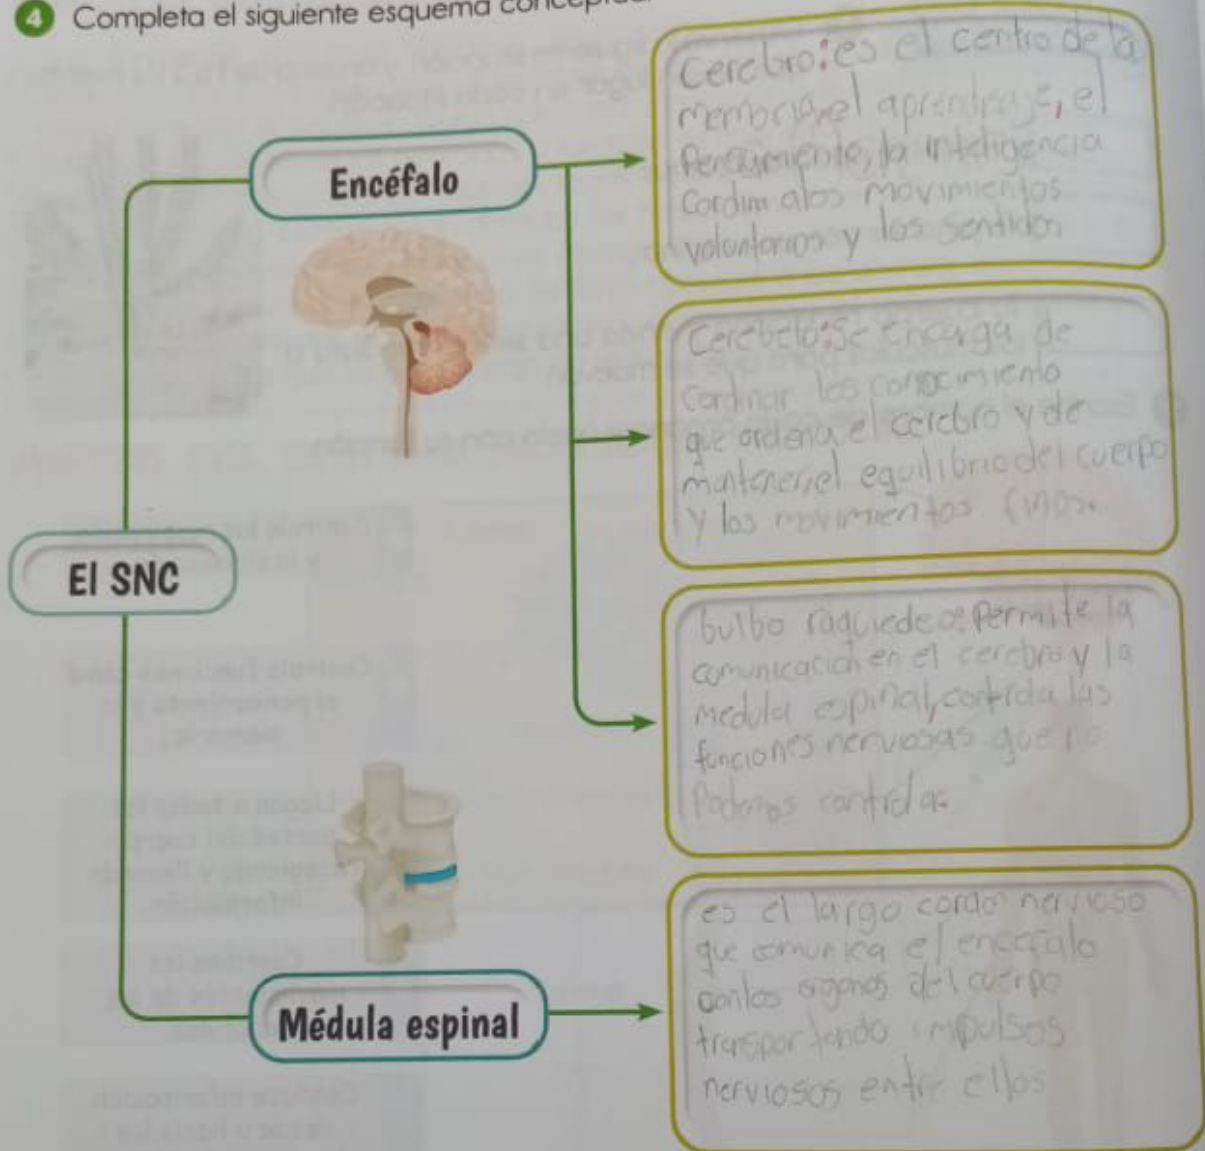 4 Completa el siguiente esquema
Encéfalo
Cerebro: es el centro de la
memoria, el aprendizaje, el
Pensamiento, la inteligencia
Cordina los movimientos
voluntarios y los sentidos
Cerebelo: se encarga de
cordinar los
que ordena el cerebro y de
mantener el equilibrio del cuerpo
y los movimientos finos.
El SNC
bulbo raquiedeo: Permite la
comunicación en el cerebro y la
medula espinal, controla las
funciones nerviosas que no
Podemos controlar.
Médula espinal
es el largo cordon nervioso
que comunica el encefalo
con los organos del cuerpo
transportando impulsos
nerviosos entre ellos